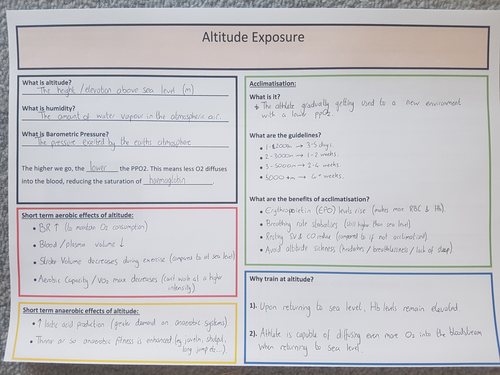 Altitude Exposure
What is altitude?
The height / elevation above sea level (m)
What is humidity?
The amount of water vapour in the atmospheric air.
What is Barometric Pressure?
The pressure exerted by the earths atmosphere
The higher we go, the lower the PPO2. This means less O2 diffuses
into the blood, reducing the saturation of haemoglobin.
Short term aerobic effects of altitude:
• B.R ↑ (to maintain O2 consumption)
• Blood / plasma volume ↓
• Stroke Volume decreases during exercise (compared to at sea level)
• Aerobic Capacity / VO2 max decreases (can't work at a higher
intensity)
Short term anaerobic effects of altitude:
• ↑ lactic acid production (greater demand on anaerobic systems).
• Thinner air so anaerobic fitness is enhanced (eg javelin, shotput,
long jump etc...)
Acclimatisation:
What is it?
The athlete gradually getting used to a new environment
with a lower ppO2
What are the guidelines?
• 1-2000m → 3-5 days
• 2-3000m → 1-2 weeks
• 3-5000m → 2-4 weeks
• 5000+m → 4+ weeks.
What are the benefits of acclimatisation?
• Erythropoietin (EPO) levels rise (makes more RBC & Hb).
• Breathing rate stabilises (still higher than sea level)
• Resting SV & CO reduce (compared to if not acclimatised).
• Avoid altitude sickness (headaches / breathlessness / lack of sleep).
Why train at altitude?
1). Upon returning to sea level, Hb levels remain elevated
2). Athlete is capable of diffusing even more O2 into the bloodstream
when returning to sea level